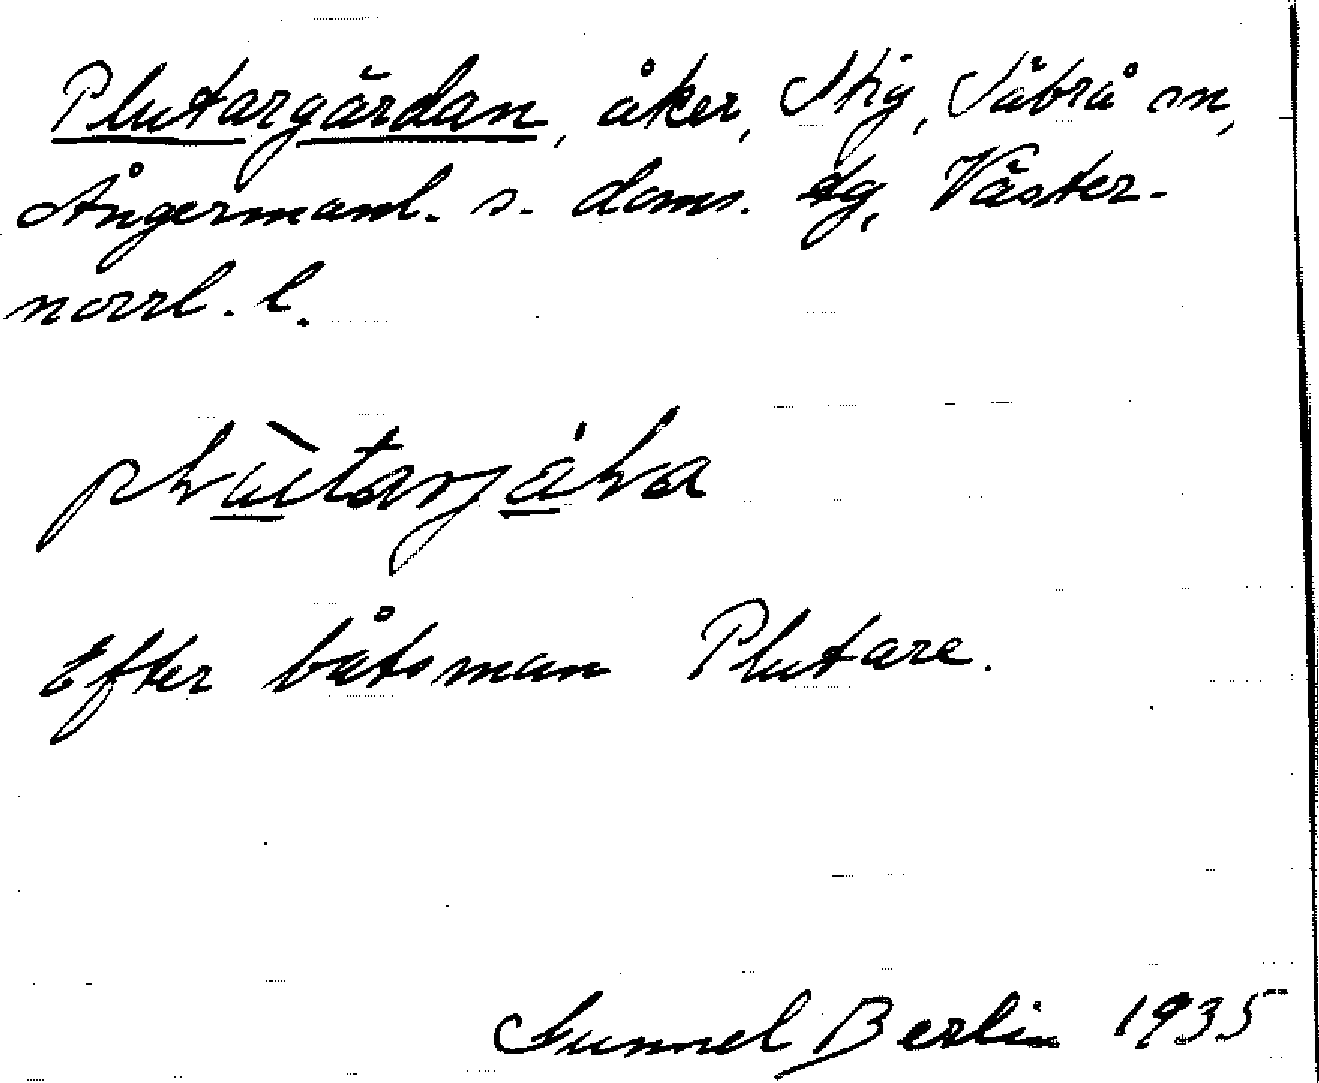 Plutargärdan, åker, Stig, Säbrå sn,
Ångermanl. s. doms. dg, Väster-
norrl. l.
Efter båtsman Plutare.
Gunnel Berlin 1935